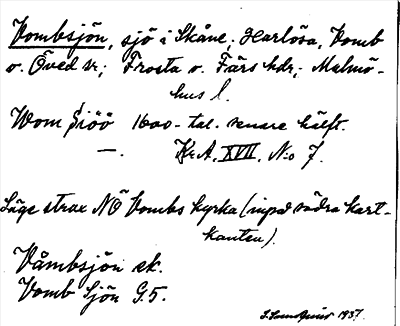 Vombsjön, sjö i Skåne; Harlösa, Vomb
o. Öved sr; Frosta o. Färs hdr; Malmö-
hus l.
Wom Siöö 1600-tal. senare hälft.
—. Kr.A. XVII. N:o 7.
Läge strax NÖ Vombs kyrka (invid södra kart-
kanten).
Våmbsjön ek.
Vomb Sjön G.5.
1937.